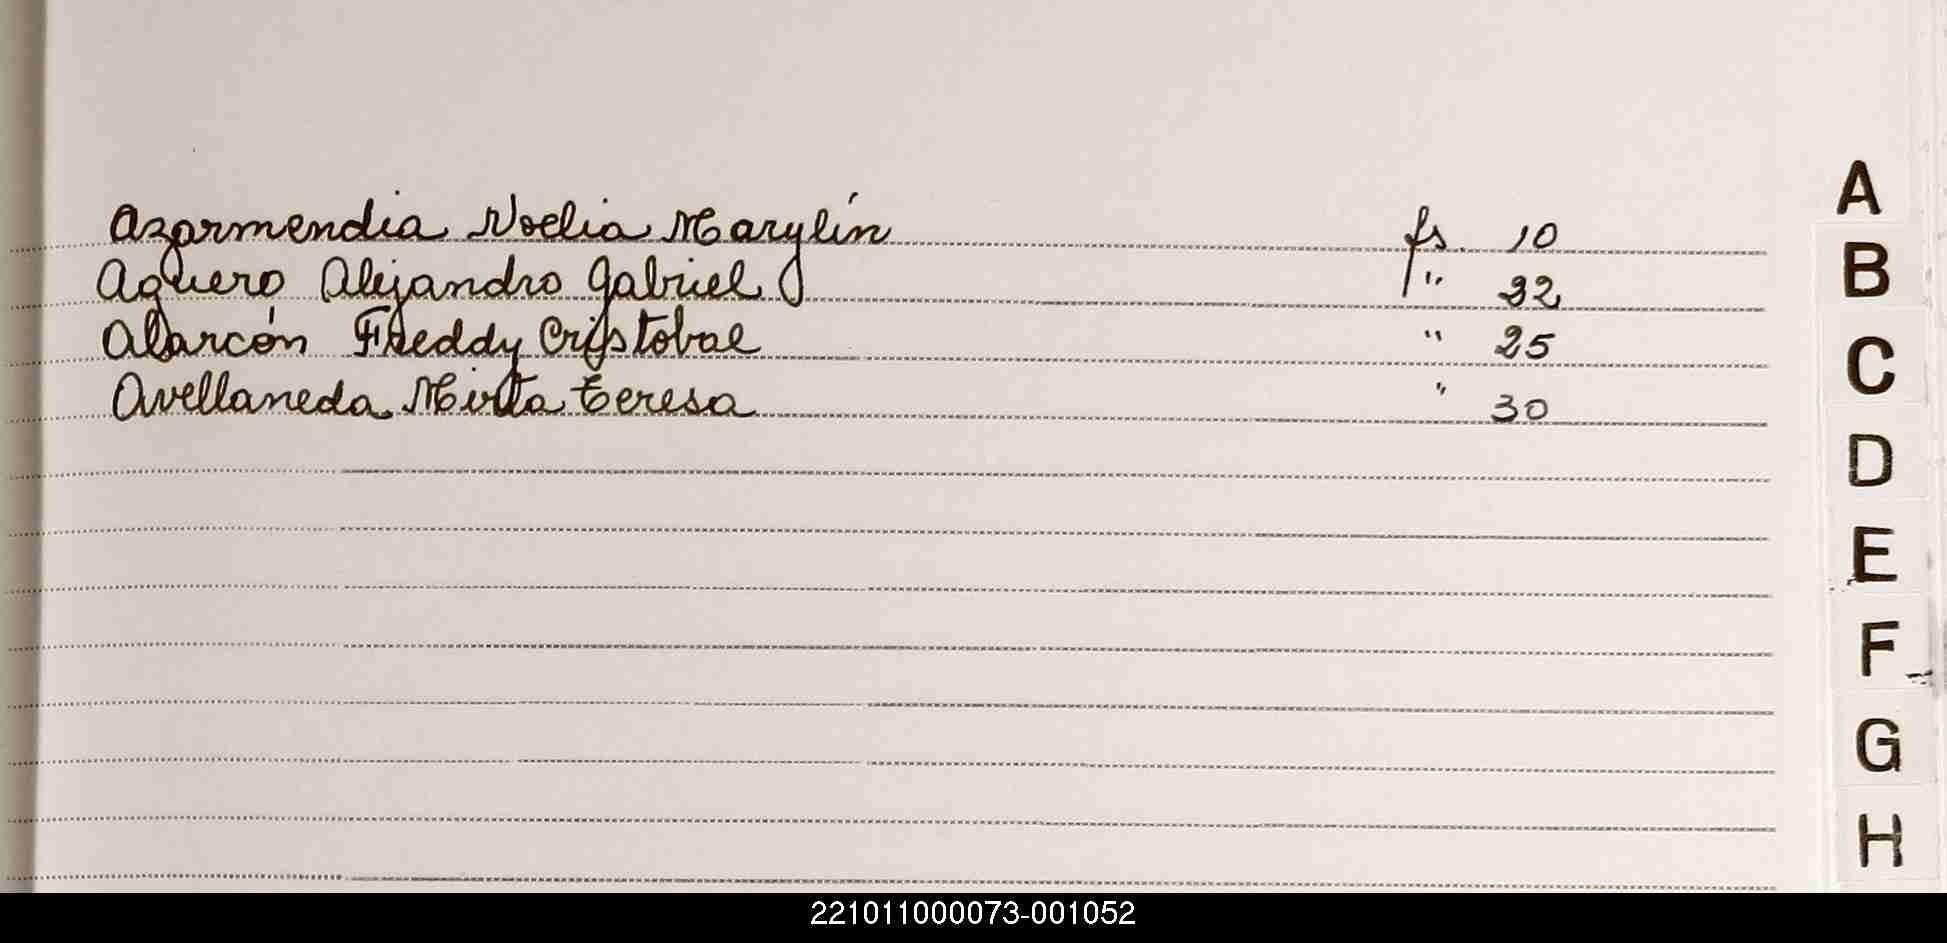 Azarmendia Noelia Marylín fs. 10
Aguero Alejandro Gabriel " 22
Alarcón Freddy Cristobal " 25
Avellaneda Mirta Teresa " 30
A
B
C
D
E
F
G
H
221011000073-001052